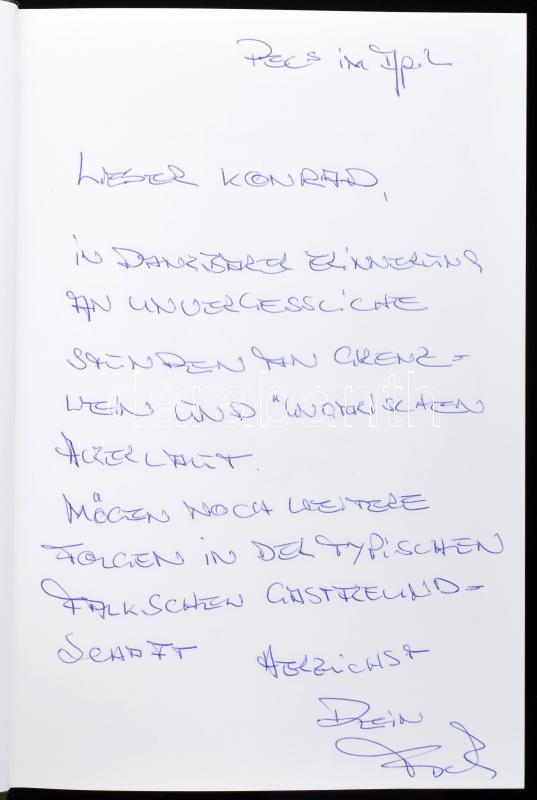 PECS im April
LIEBER KONRAD,
iN DANKBARER ERiNNERUNG
AN UNVERGESSLICHE
STUNDEN AN GRENZ-
WEIN UND "UNGARISCHEN
darabanth
MÖGEN NOCH WEITERE
FOLGEN IN DER TYPiSCHEN
FALKSCHEN GASTFREUND-
SCHAFT HERZLICHST
DEiN